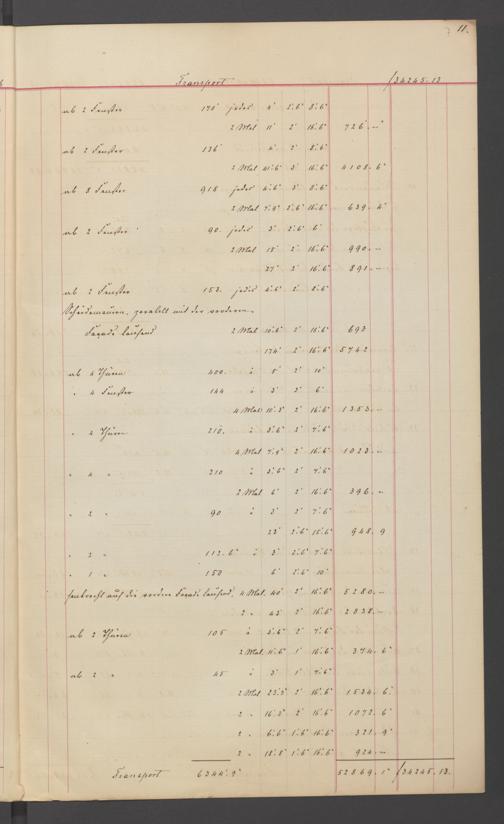 11.
Transport /34245.13.
ab 2 Fenster 170' jedes 4' 2'.6" 8'.6"
2 Mal 11' 2' 16'.6" 726.-"
ab 2 Fenster 136' 4' 2' 8'.6"
2 Mal 2' 16'.6" 4108.6"
ab 8 Fenster 918 jedes 4'.6" 3' 8'.6"
2 Mal 7'.9" 2'.6" 16'.6" 639.4"
ab 2 Fenster 90. jedes 3' 2'.6" 6'
2 Mal 15' 2' 16'.6" 990.-
27' 2' 16'.6" 891.-
ab 2 Fenster 153. jedes 4'.6" 2' 8'.6"
Scheidemauern, parallel mit der vorderen
Façade laufend 2 Mal 10'.6" 2' 16'.6" 693
174' 2' 16'.6" 5742
ab 4 Thüren 400. à 5' 2' 10'
" 4 Fenster 144 à 3' 2' 6'
4 Mal 10'.3" 2' 16'.6" 1353.-
" 4 Thüren 210. à 3'.6" 2' 7'.6"
4 Mal 7'.9" 2' 16'.6" 1023.-
" 4 " 210 à 3'.6" 2' 7'.6"
2 Mal 6' 2' 16'.6" 396.-
" 2 " 90 à 3' 2' 7'.6"
23' 2'.6" 16'.6" 948.9
" 2 " 112.6" à 3' 2'.6" 7'.6"
" 1 " 150 6' 2'.6" 10'
senkrecht auf die vordere Façade laufend, 4 Mal 40' 2' 16'.6" 5280.-
2 " 43' 2' 16'.6" 2838.-
ab 2 Thüren 105 à 3'.6" 2' 7'.6"
2 Mal 1' 16'.6" 374.6"
ab 2 " 45 à 3' 1' 7'.6"
2 Mal 23'.3" 2' 16'.6" 1534.6"
2 " 16'.3" 2' 16'.6" 1072.6"
2 " 6'.6" 1'.6" 16'.6" 321.9"
2 " 18'.8" 1'.6" 16'.6" 924.-
Transport 6344'.9" 52869.1" /34245.13.